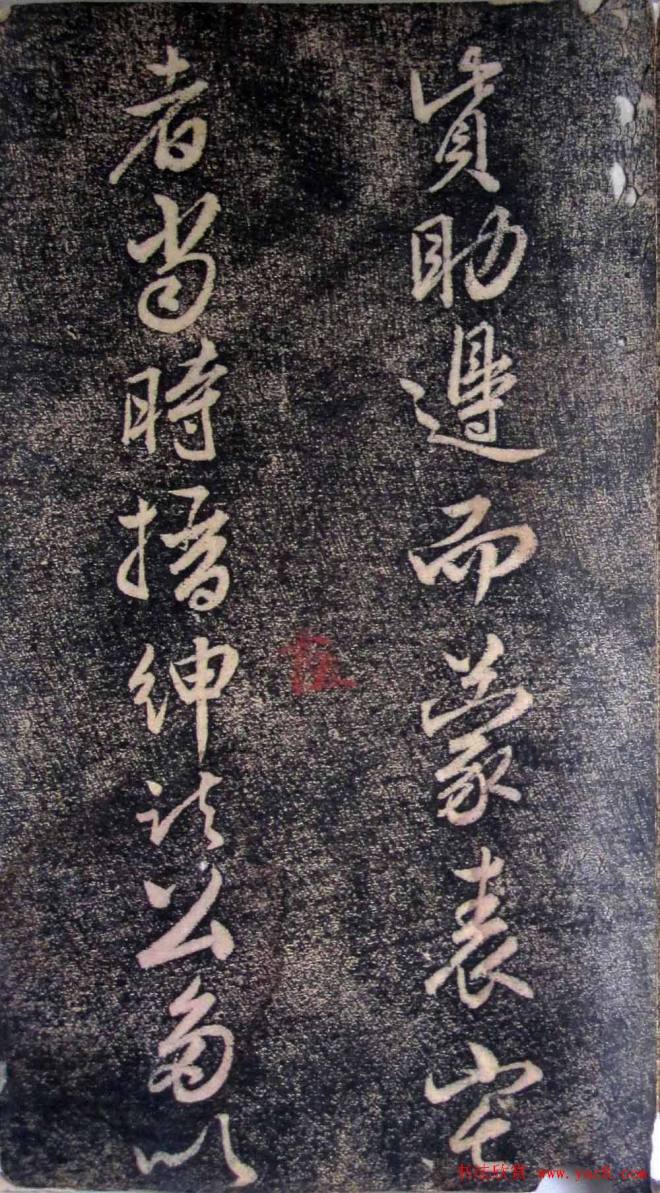 資助邊而蒙表
者當時搢紳諸公多以
书法欣赏 www.yac8.com